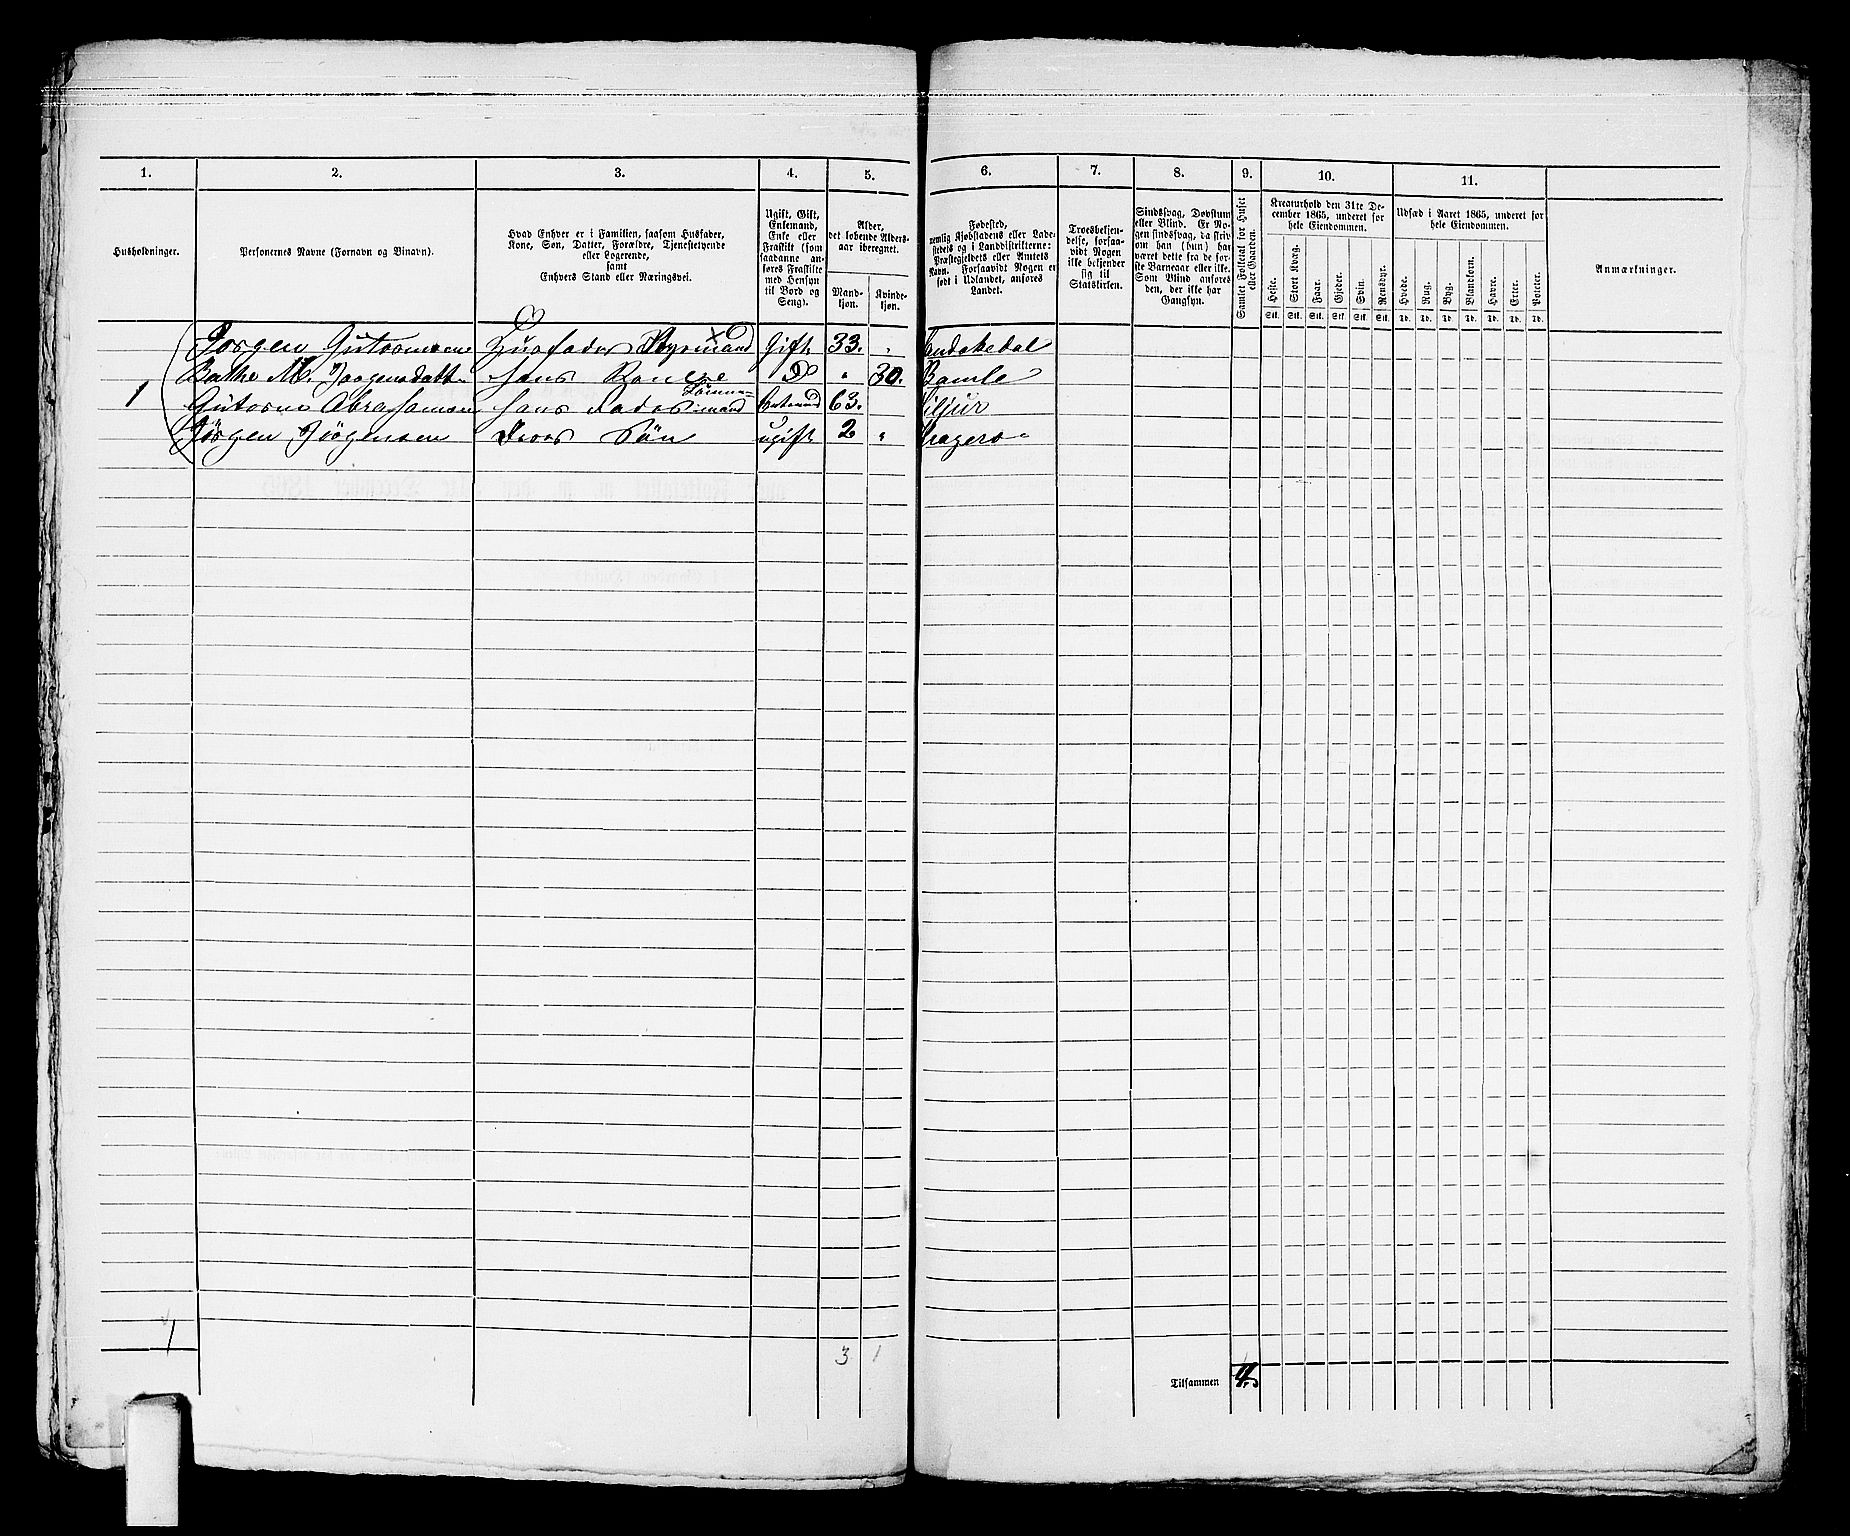 1. 2. 3. 4. 5. 6. 7. 8. 9. 10. 11.
Husholdninger.
Personernes Navne (Fornavn og Binavn).
Hvad Enhver er i Familien, saasom Husfader,
Kone, Søn, Datter, Forældre, Tjenestetyende
eller Logerende,
samt
Enhvers Stand eller Næringsvei.
Ugift, Gift,
Enkemand,
Enke eller
Fraskilt (som
saadanne an-
føres Fraskilte
med Hensyn
til Bord og
Seng).
Alder,
det løbende Alders-
aar iberegnet.
Mand-
kjøn.
Kvinde-
kjøn.
Fødested,
nemlig Kjøbstadens eller Lade-
stedets og i Landdistrikterne:
Præstegjeldets eller Amtets
Navn. Forsaavidt Nogen er
født i Udlandet, anføres
Landet.
Troesbekjen-
delse, forsaa-
vidt Nogen
ikke bekjender
sig til
Statskirken.
Sindssvag, Døvstum
eller Blind. Er No-
gen sindssvag, da skriv
om han (hun) har
været dette fra de før-
ste Barneaar eller ikke.
Som Blind anføres
den, der ikke har
Gangsyn.
Samlet Folketal for Huset
eller Gaarden.
Kreaturhold den 31te De-
cember 1865, underet for
hele Eiendommen.
Heste. Stort Kvæg. Faar. Gjeder. Svin. Rensdyr.
Stk. Stk. Stk. Stk. Stk. Stk.
Udsæd i Aaret 1865, underet for
hele Eiendommen.
Hvede. Rug. Byg. Blandkorn. Havre. Erter. Poteter.
Td. Td. Td. Td. Td. Td. Td.
Anmærkninger.
Jørgen Gutormsen Husfader Styrmand Gift 33. „
Bathe M. Jørgensdatt hans Kone Do „ 30. Bamle
1
Gutorm Abrahamsen hans Fader Enkemand 63. Siljur
Jørgen Jørgensen Deres Søn ugift 2 „ Kragerø
1
3 1
Tilsammen 4.